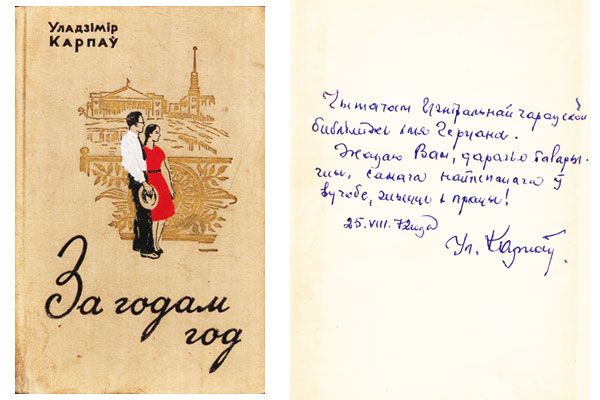 Уладзімір
КАРПАЎ
За годам
год
Чытачам Цэнтральнай гарадской
бібліятэкі імя Герцэна.
Жадаю Вам, дарагія тавары-
шы, самага найлепшага ў
вучобе, жыцці і працы!
25.VIII.72 года
Ул. Карпаў.